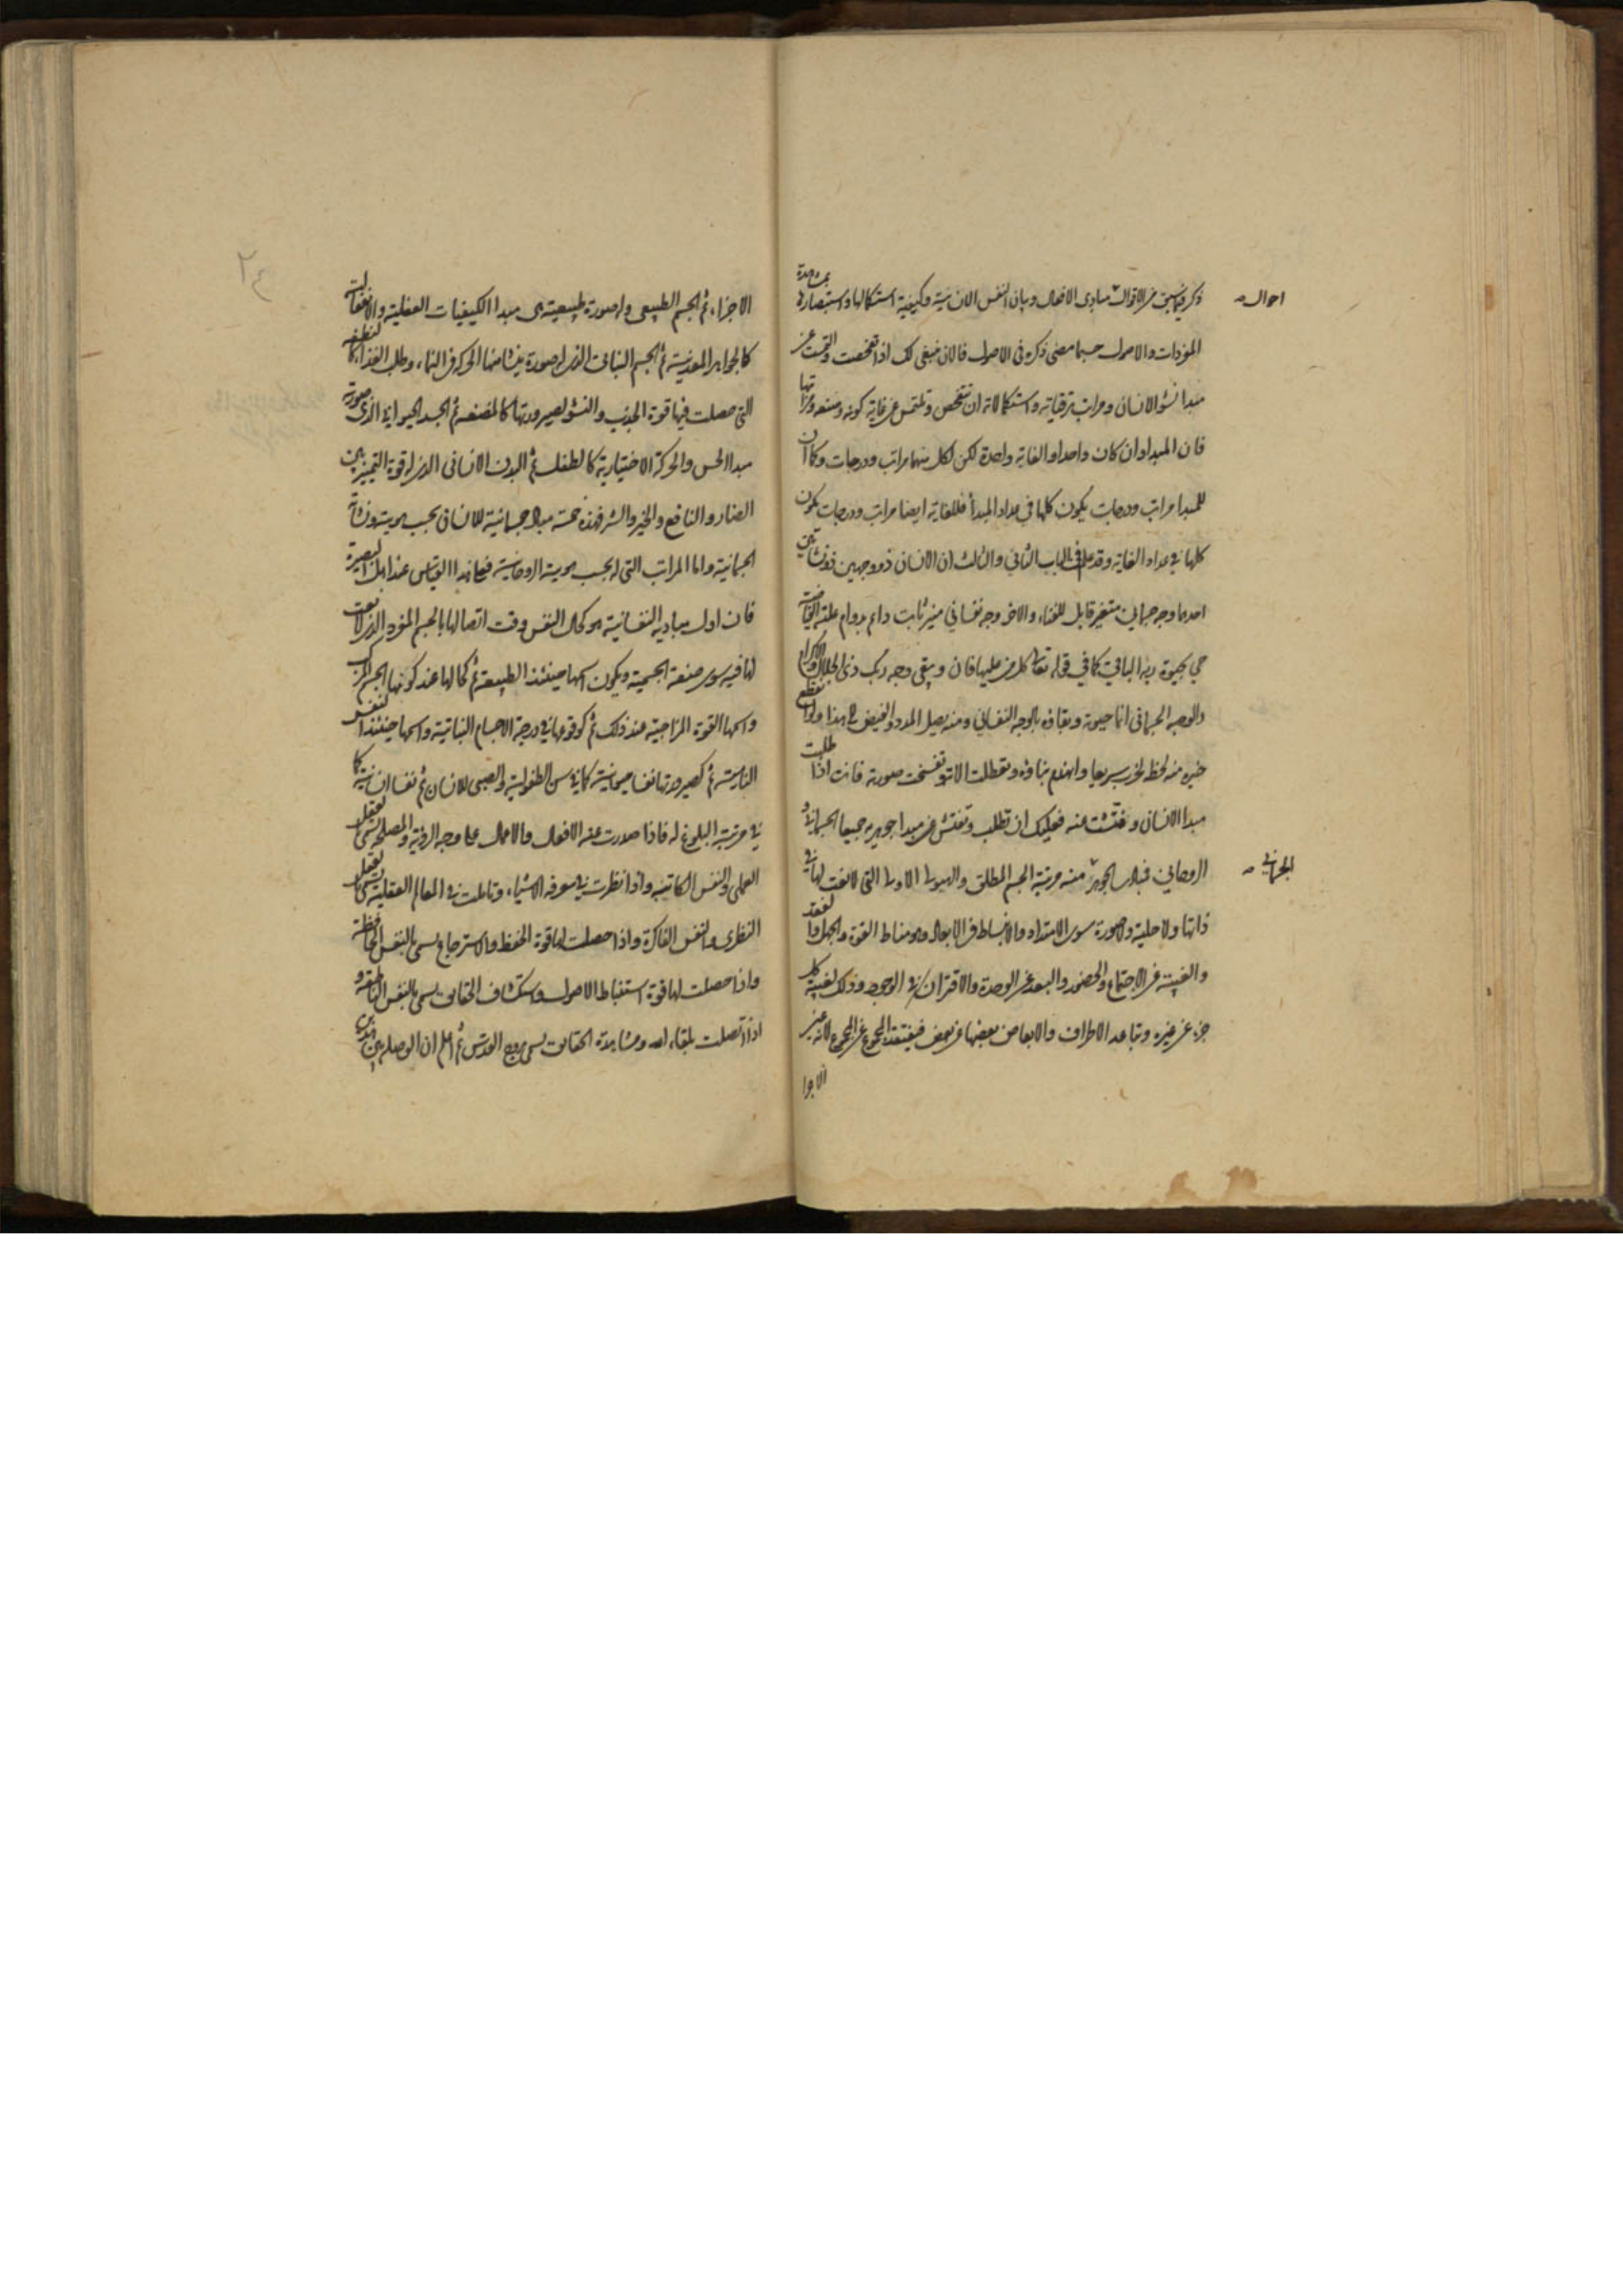 ذكر فيما سبق من الاقوال مبادى الافعال وبيان النفس الانسانية وكيفية استكمالها واستبصارها بمشاهدة
احوال
المؤدات والاصول حسبما مضى ذكره فى الاصول فالان ينبغى لك اذا تفحصت والتمست عن
مبدا نشو الانسان ومراتب ترقياته واستكمالاته ان تتفحص وتلتمس عن غاية كونه ومنعه ومراتبها
فان المبدا وان كان واحدا والغاية واحدة لكن لكل منهما مراتب ودرجات وكما ان
للمبدا مراتب ودرجات يكون كلها فى عداد المبدأ فللغاية ايضا مراتب ودرجات يكون
كلها فى عداد الغاية وقد علم فى الباب الثانى والثالث ان الانسان ذو وجهين ذو نشاتين
احدهما وجه جسمانى متغير قابل للفناء والاخر وجه نفسانى منير ثابت دائم بدوام علته الفياضة
حى بحيوة ربه الباقى كما فى قوله تعالى كل من عليها فان ويبقى وجه ربك ذى الجلال والاكرام
والوجه الجسمانى انما حيوته وبقاؤه بالوجه النفسانى ومنه يصل المدد والفيض الى هذا ولو انقطع
خيره منه لحظة لخرب سريعا وانهدم بناؤه وتعطلت الاته وتفسخت صورته فانت اذا طلبت
مبدا الانسان وفتشت عنه فعليك ان تطلب وتفتش عن مبدا جوهريه جميعا الجسمانى ثم
الروحانى فمبدا الجوهر منه مرتبة الجسم المطلق والهيولى الاولى التى لا نعت لها فى
الجسمانى
ذاتها ولا حلية ولا صورة سوى الامتداد والانبساط فى الابعاد وهو مناط القوة والجهل والفقد
والغيبة عن الاجتماع والحضور والبعد عن الوحدة والاقتران فى الوجود وذلك لغيبة كل
جزء عن غيره وتباعد الاطراف والابعاض بعضها عن بعض فيفتقد المجموع عن المجموع لانه غير
الاجزا
٢٤
الاجزاء ثم الجسم الطبيعى وله صورة طبيعية هى مبدا الكيفيات الفعلية والانفعالية
كالجواهر المعدنية ثم الجسم النباتى الذى له صورة ينشا منها الحركة فى النماء وطلب الغذاء كالنطفة
التى حصلت فيها قوة الجذب والنشو لصيرورتها كالمضغة ثم الجسد الحيوانى الذى صورته
مبدا الحس والحركة الاختيارية كالطفل ثم البدن الانسانى الذى له قوة التمييز بين
الضار والنافع والخير والشر فهذه خمسة مباد جسمانية للانسان بحسب هويته ونشاته
الجسمانية واما المراتب التى له بحسب هويته الروحانية فعلى هذا القياس عند اهل البصيرة
فان اول مباديه النفسانية هو كمال النفس وقت اتصالها بالجسم المفرد الذى لا نعت
لها فيه سوى صنعة الجسمية ويكون اسمها حينئذ الطبيعة ثم كمالها عند كونها الجسم المركب
واسمها القوة المزاجية عند ذلك ثم كوقوعها فى درجة الاجسام النباتية واسمها حينئذ النفس
النامية ثم كصيرورتها نفسا حيوانية كما فى سن الطفولية والصبى للانسان ثم نفسا انسانية كما
فى مرتبة البلوغ له فاذا صدرت عنه الافعال والاعمال على وجه الروية والمصلحة يسمى بالعقل
العملى والنفس الكاتبة واذا نظرت فى معرفة الاشياء وتاملت فى المعالم العقلية يسمى بالعقل
النظرى والنفس الفاكرة واذا حصلت لها قوة الحفظ والاسترجاع يسمى بالنفس الحافظة
واذا حصلت لها قوة استنباط الاصول واستكشاف الحقايق يسمى بالنفس الناطقة و
اذا اتصلت بلقاء الله ومشاهدة الحقايق يسمى بروح القدس ثم اعلم ان الوصلة بين